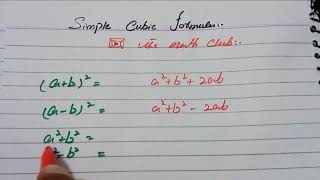 Simple Cubic Formula:.
The Math Club:.
(a+b)² = a²+b²+2ab
(a-b)² = a²+b²-2ab
a²+b² =
²-b² =